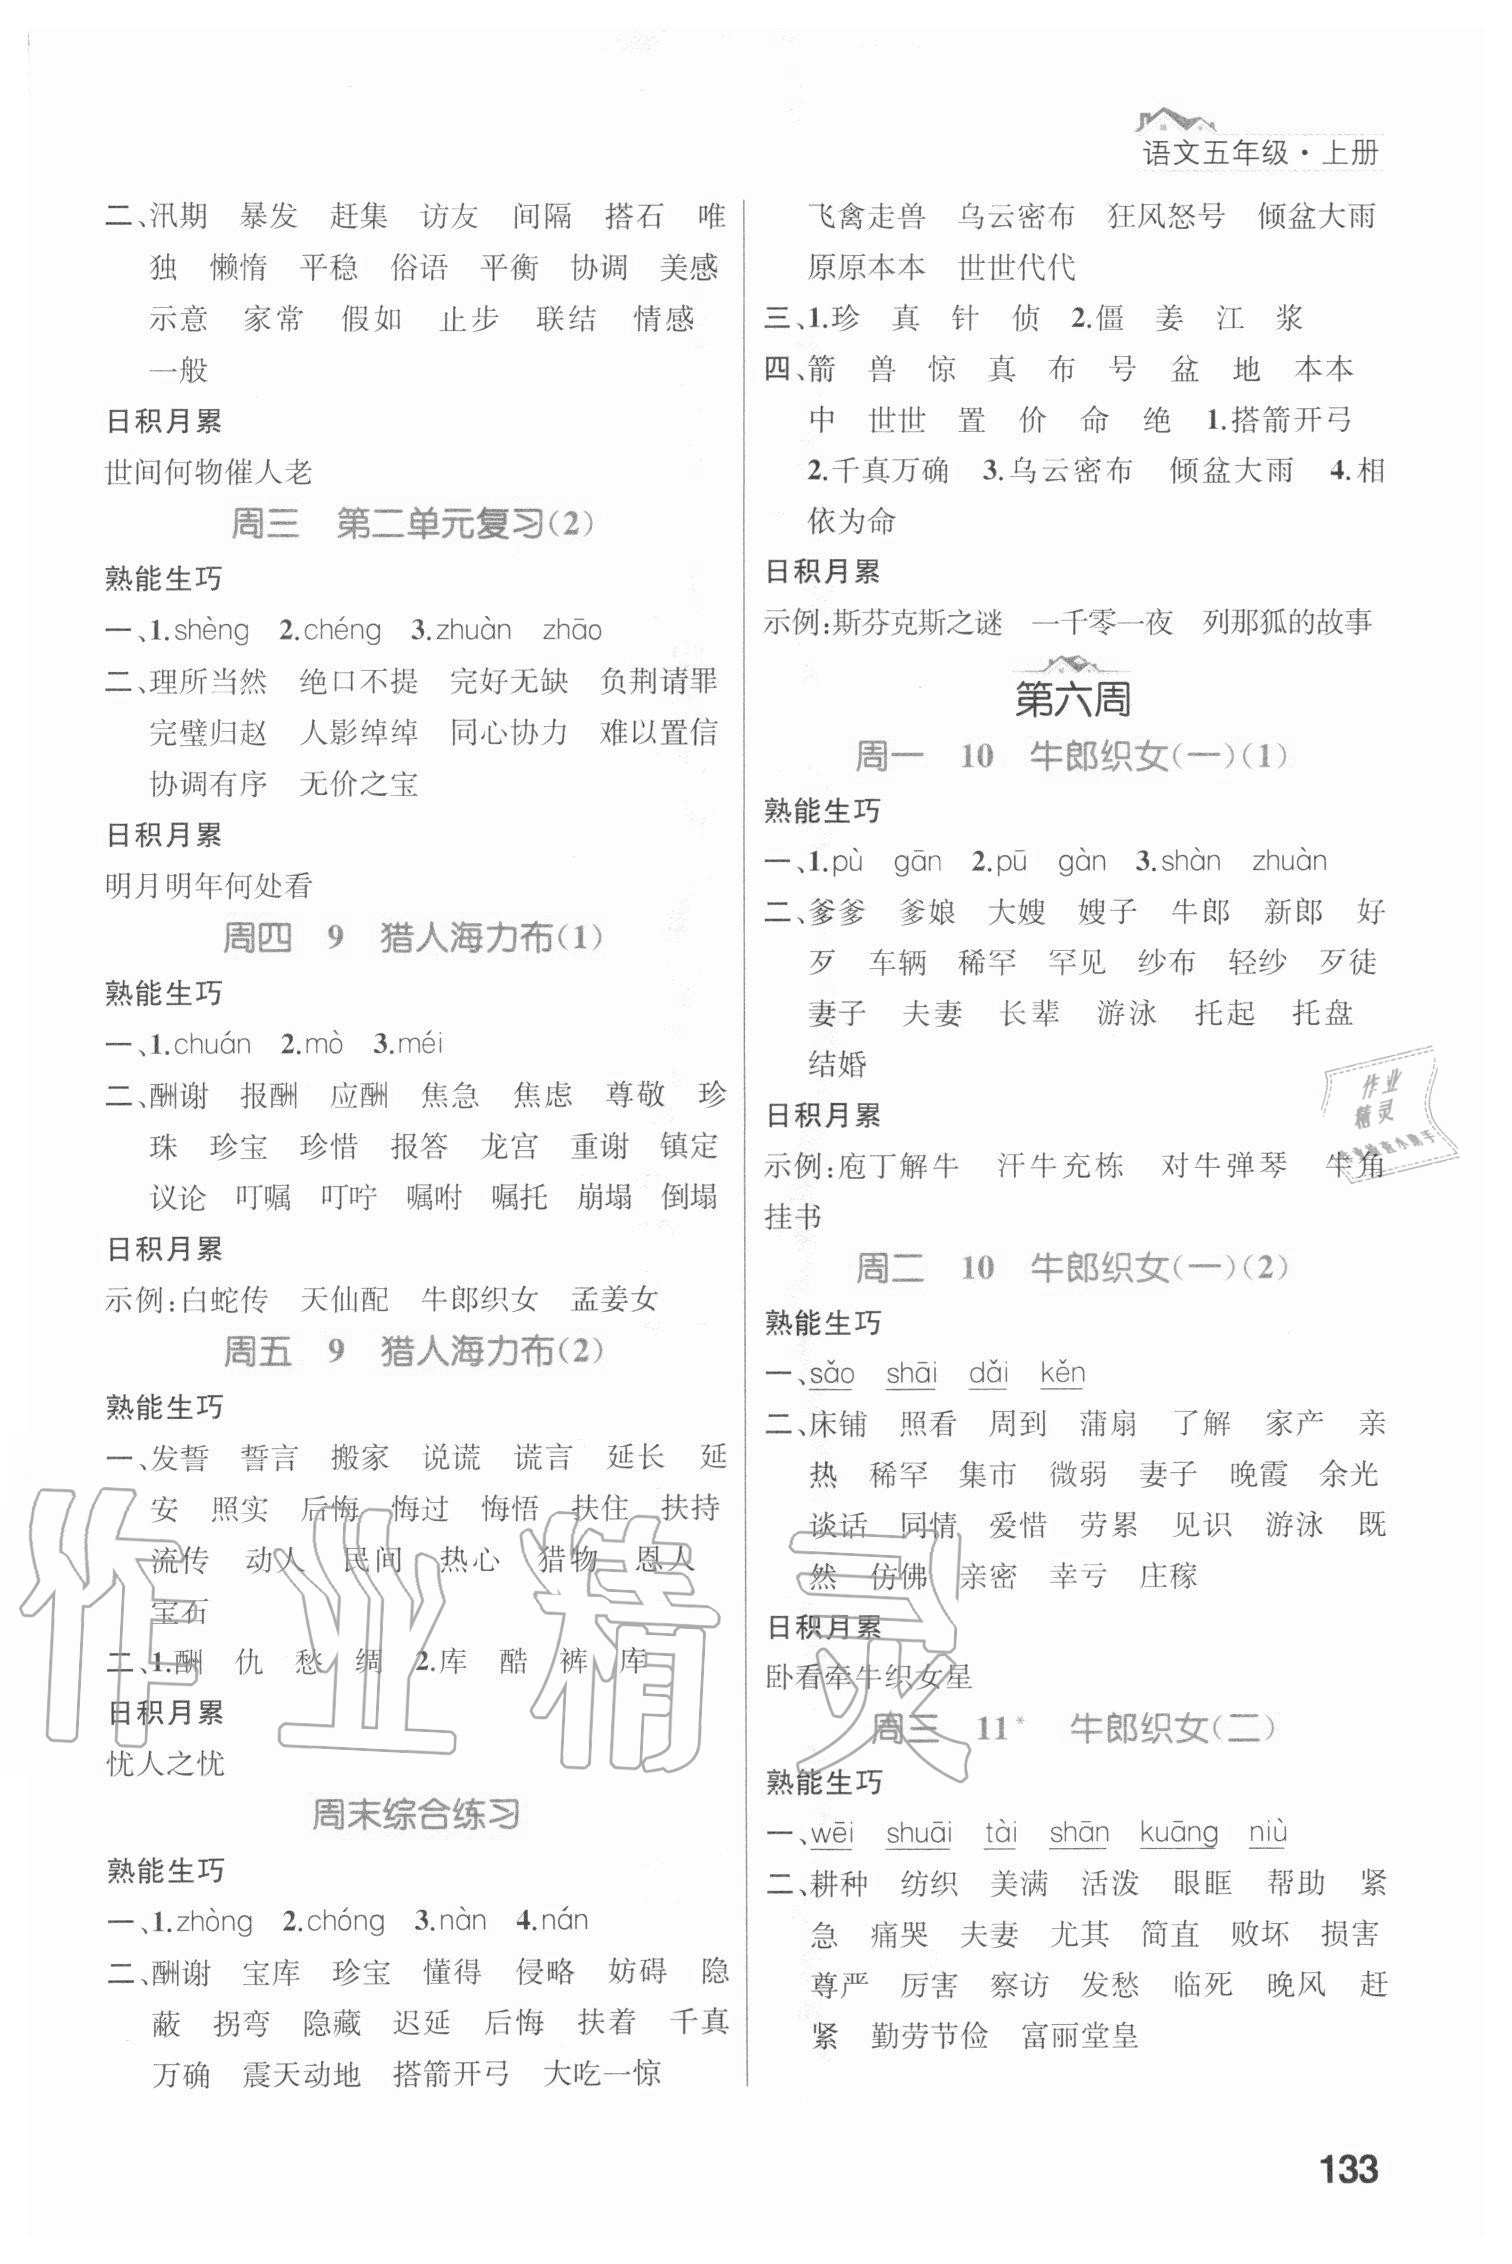 语文五年级·上册
二、汛期 暴发 赶集 访友 间隔 搭石 唯
独 懒惰 平稳 俗语 平衡 协调 美感
示意 家常 假如 止步 联结 情感
一般
日积月累
世间何物催人老
周三 第二单元复习(2)
熟能生巧
一、1.shèng 2.chéng 3.zhuàn zhāo
二、理所当然 绝口不提 完好无缺 负荆请罪
完璧归赵 人影绰绰 同心协力 难以置信
协调有序 无价之宝
日积月累
明月明年何处看
周四 9 猎人海力布(1)
熟能生巧
一、1.chuán 2.mò 3.méi
二、酬谢 报酬 应酬 焦急 焦虑 尊敬 珍
珠 珍宝 珍惜 报答 龙宫 重谢 镇定
议论 叮嘱 叮咛 嘱咐 嘱托 崩塌 倒塌
日积月累
示例:白蛇传 天仙配 牛郎织女 孟姜女
周五 9 猎人海力布(2)
熟能生巧
一、发誓 誓言 搬家 说谎 谎言 延长 延
安 照实 后悔 悔过 悔悟 扶住 扶持
流传 动人 民间 热心 猎物 恩人
宝石
二、1.酬 仇 愁 绸 2.库 酷 裤 库
日积月累
忧人之忧
周末综合练习
熟能生巧
一、1.zhòng 2.chóng 3.nàn 4.nán
二、酬谢 宝库 珍宝 懂得 侵略 妨碍 隐
蔽 拐弯 隐藏 迟延 后悔 扶着 千真
万确 震天动地 搭箭开弓 大吃一惊
飞禽走兽 乌云密布 狂风怒号 倾盆大雨
原原本本 世世代代
三、1.珍 真 针 侦 2.僵 姜 江 浆
四、箭 兽 惊 真 布 号 盆 地 本本
中 世世 置 价 命 绝 1.搭箭开弓
2.千真万确 3.乌云密布 倾盆大雨 4.相
依为命
日积月累
示例:斯芬克斯之谜 一千零一夜 列那狐的故事
第六周
周一 10 牛郎织女(一)(1)
熟能生巧
一、1.pù gān 2.pū gàn 3.shàn zhuàn
二、爹爹 爹娘 大嫂 嫂子 牛郎 新郎 好
歹 车辆 稀罕 罕见 纱布 轻纱 歹徒
妻子 夫妻 长辈 游泳 托起 托盘
结婚
日积月累
示例:庖丁解牛 汗牛充栋 对牛弹琴 牛角
挂书
周二 10 牛郎织女(一)(2)
熟能生巧
一、sǎo shāi dǎi kěn
二、床铺 照看 周到 蒲扇 了解 家产 亲
热 稀罕 集市 微弱 妻子 晚霞 余光
谈话 同情 爱惜 劳累 见识 游泳 既
然 仿佛 亲密 幸亏 庄稼
日积月累
卧看牵牛织女星
周三 11* 牛郎织女(二)
熟能生巧
一、wēi shuāi tài shān kuāng niù
二、耕种 纺织 美满 活泼 眼眶 帮助 紧
急 痛哭 夫妻 尤其 简直 败坏 损害
尊严 厉害 察访 发愁 临死 晚风 赶
紧 勤劳节俭 富丽堂皇
作业精灵
作业
精灵
133